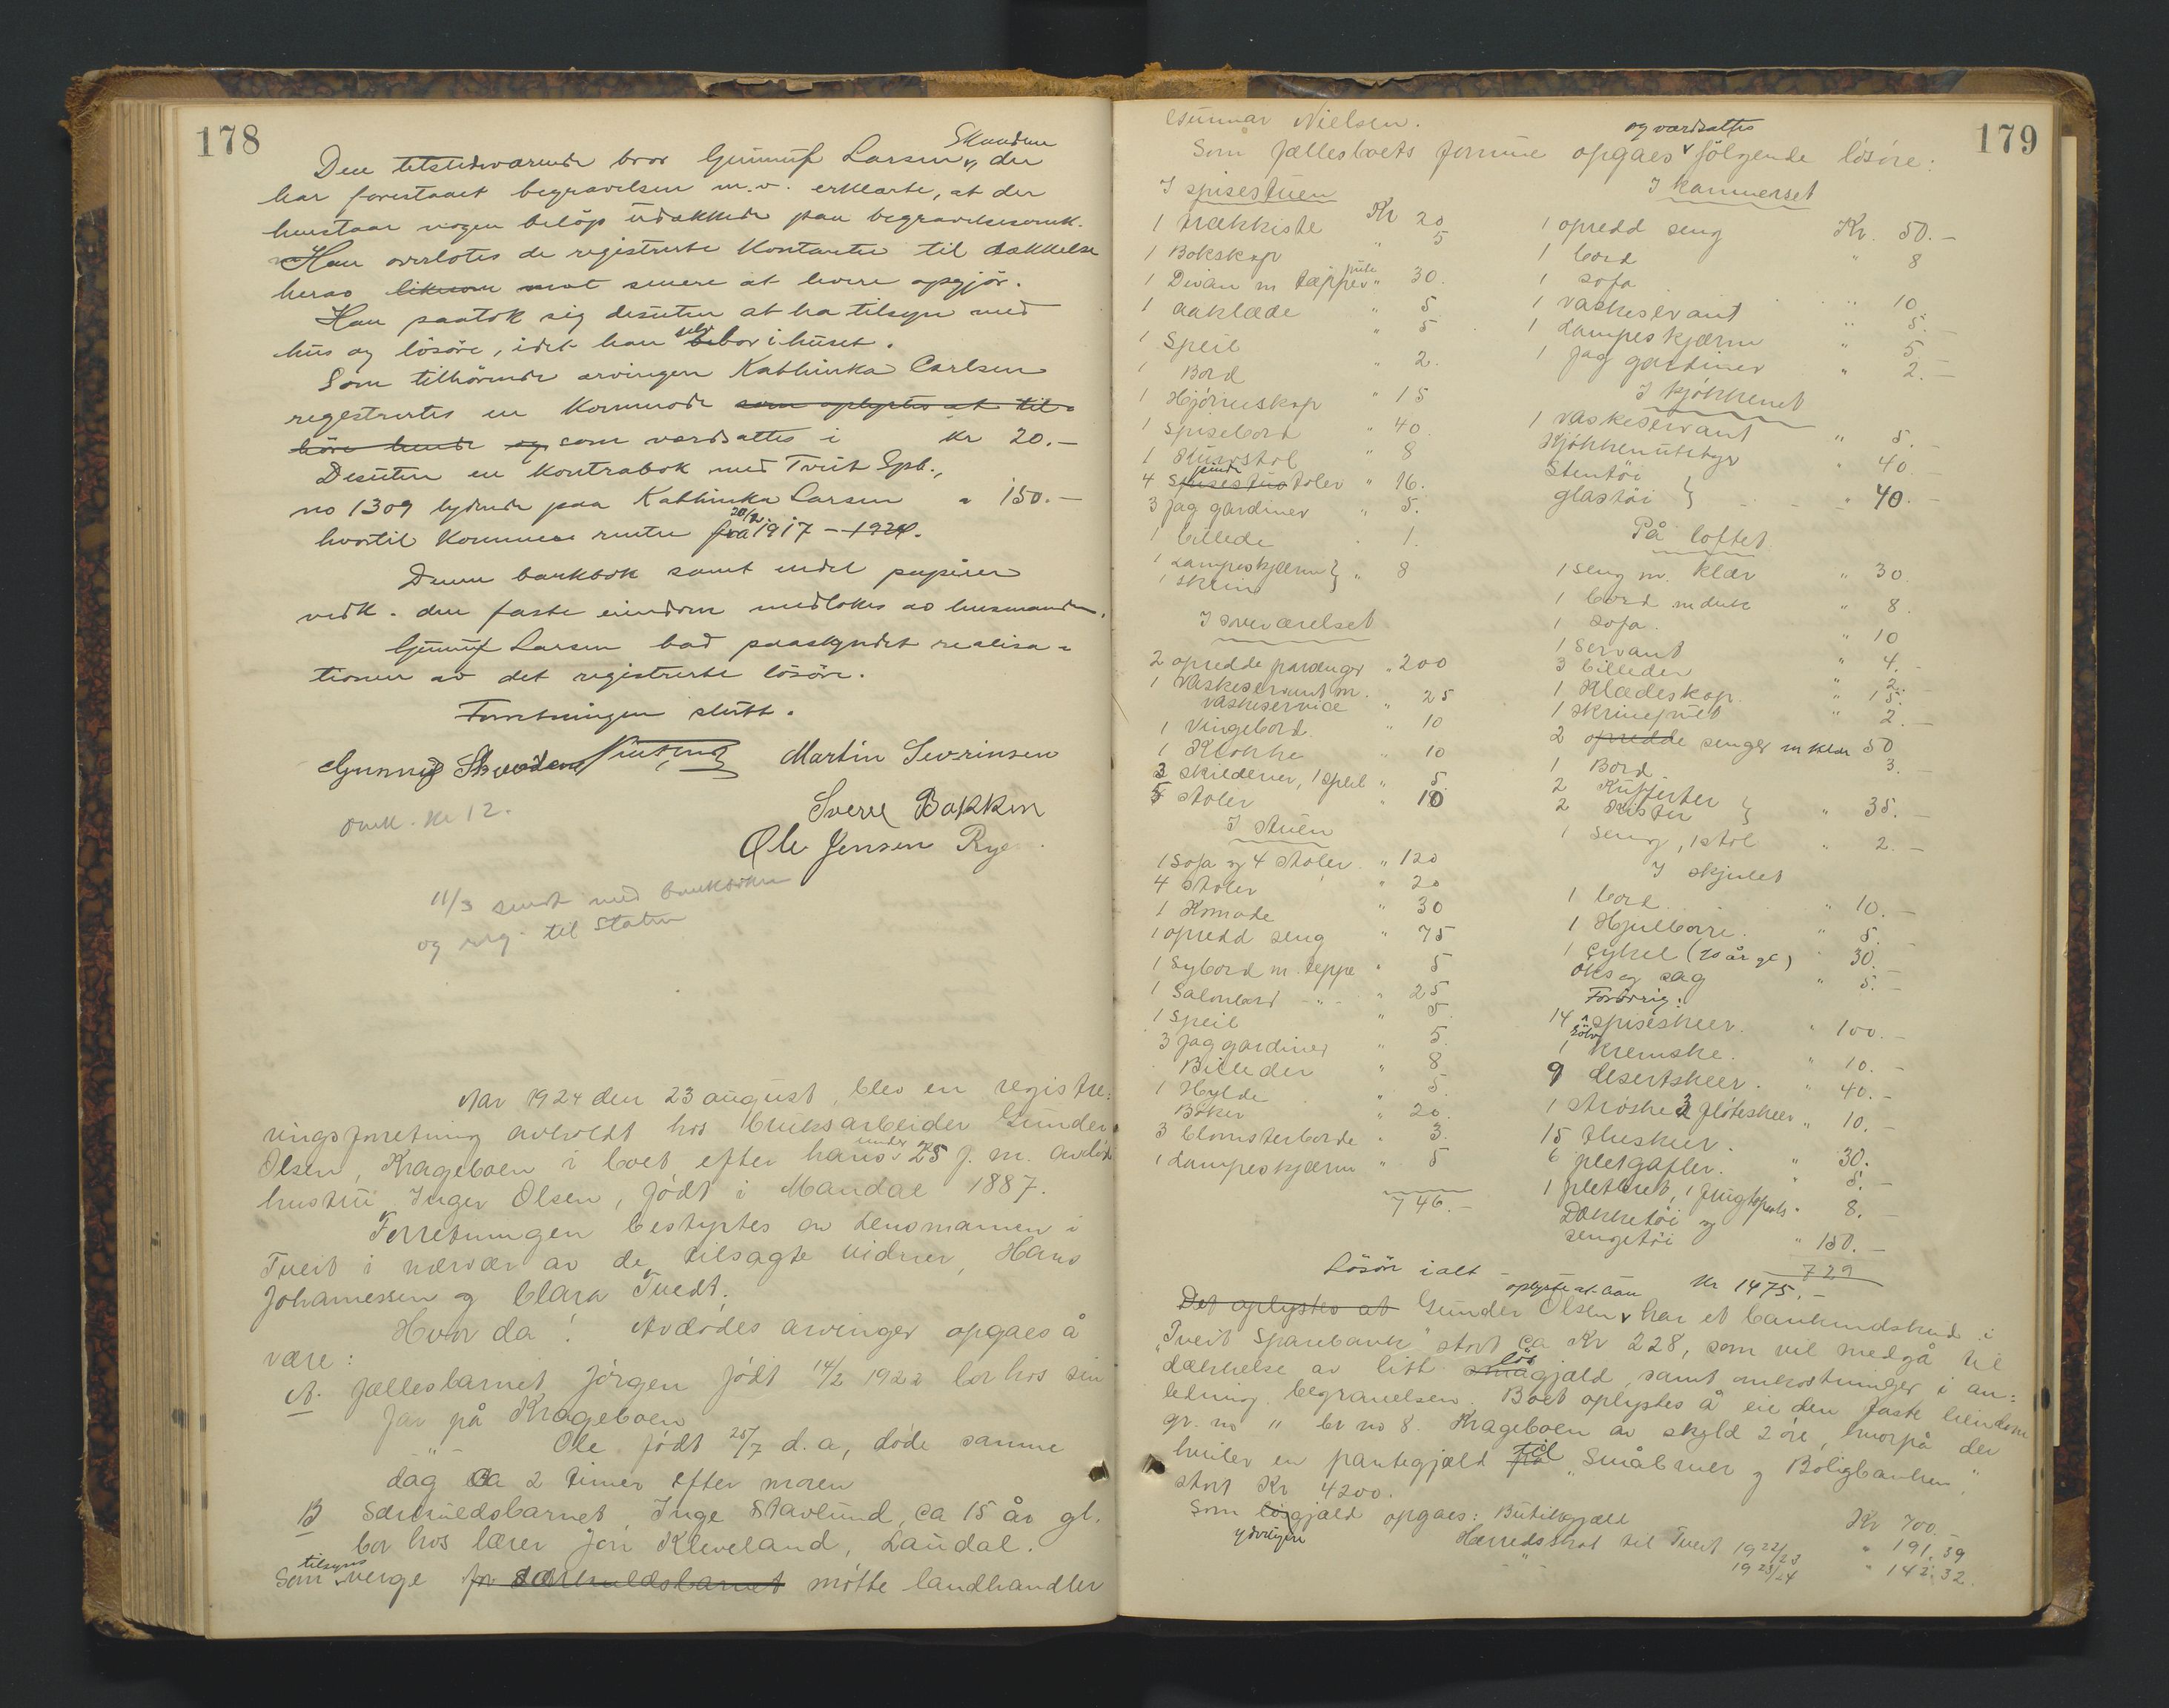 178
Den tilstedeværende bror Gunnuf Larsen Skuadsen, der
har forestaaet begravelsen m.v. erklærte, at der
henstaar nogen beløp udækkede paa begravelsesomk.
Han overlotes de registrerte kontanter til dækkelse
herav likesom mot senere at levere opgjör.
Han paatok sig desuten at ha tilsyn med
hus og lösöre, idet han selv bebor i huset.
Som tilhörende arvingen Kathinka Carlsen
registrertes en kommode som oplystes at til-
höre hende og som værdsattes i kr 20.-
Desuten en kontrabok med Tveit Spb.,
no 1309 lydende paa Kathinka Larsen " 150.-
hvortil kommer renter fra 20/2 1917 - 1924.
Denne bankbok samt endel papirer
vedk. den faste eiendom medtokes av lensmanden.
Gunnuf Larsen bad paaskyndet realisa-
tionen av det registrerte lösöre.
Forretningen slutt.
Gunnuf Skuadsen Martin Severinsen
Sverre Bakken
Ole Jensen Rye
Omk. kr 12.
11/3 sendt med bankboken
og reg. til Staten
Aar 1924 den 23 august, blev en registre:
ringsforretning avholdt hos bruksarbeider Gunder
Olsen, Krageboen i boet efter hans under 25 f. m. avdöde
hustru Inger Olsen, født i Mandal 1887.
Forretningen bestyrtes av lensmannen i
Tveit i nærvær av de tilsagte vidner, Hans
Johannessen og Clara Tvedt.
Hvor da! Avdødes arvinger opgaes å
være:
A. Fællesbarnet Jörgen født 14/2 1922 bor hos sin
far på Krageboen
-"- Ole født 25/7 d.a, døde samme
dag ca 2 timer efter moren
B Særkuldsbarnet, Inge Stavlund, ca 15 år gl.
bor hos lærer Jon Kleveland, Laudal.
Som tilsyns verge for særkuldsbarnet mötte landhandler
179
Gunnar Nielsen.
Som fællesboets formue opgaes og værdsattes fölgende lösöre:
I spisestuen
1 trækkiste Kr 20
1 Bokskap " 5
1 Divan m tæpper pute " 30.
1 aaklæde " 5
1 Speil " 5
1 Bord " 2.
1 Hjörneskap " 15
1 spisebord " 40.
1 kurvstol " 8
4 spisestue pinde stoler " 16.
3 fag gardiner " 5.
1 billede 1.
1 Lampeskjærm }
1 skrin } " 8
I soveværelset
2 opredde parsenger " 200
1 Vaskeservant m.
vaskeservice " 25
1 Vingebord " 10
1 Klokke " 10
3 skilderier, 1 speil " 5.
5 stoler " 10
I stuen
1 Sofa og 4 stoler " 120
4 stoler " 20
1 Komode " 30
1 opredd seng " 75
1 Sybord m. teppe " 5
1 Salonbord -"- " 25
1 Speil " 5.
3 fag gardiner " 5.
Billeder " 8
1 Hylde " 5.
Böker " 20.
3 blomsterborde " 3.
1 Lampeskjærm " 5
746.-
I kammerset
1 opredd seng Kr. 50.-
1 bord " 8
1 sofa " 10
1 vaskeservant " 5.-
1 Lampeskjærm " 5
1 fag gardiner " 2.-
I kjökkenet
1 vaskeservant " 5.-
Kjökkenutstyr " 40.
Stentöi }
glastöi } " 40.-
På loftet
1 Seng m. klær " 30.
1 bord m duk " 8.
1 Sofa. " 10
1 Servant " 4.-
3 billeder " 2.-
1 Klædeskap. " 15.
1 skrinepult " 2.-
2 opredde senger m klær 50
1 Bord 3.-
2 Kufferter }
2 kister } " 35.-
1 Seng, 1 stol " 2.-
I skjulet
1 bord " 10.-
1 Hjulborre. " 5.-
1 Cykel (20 år gl) " 30.
Öks og sag " 5.-
Forövrig:
14 sölv spiseskeer. " 100.-
1 kremske. " 10.-
9 desertskeer. " 40.-
1 ströske 3 flöteskeer " 10.-
15 theskeer. " 30.-
6 pletgafler. " 5.-
1 pletbret, 1 frugtopsats " 8.-
Dækketöi og
sengetöi " 150.-
729
Lösöre ialt - Kr 1475.-
Det oplystes at Gunder Olsen oplyste at han har et bankindskud i
"Tveit Sparebank" stort ca Kr 228, som vil medgå til
dækkelse av litt små lös gjæld, samt omkostninger i an:
ledning begravelsen. Boet oplystes å eie den faste eiendom
gr. no " br no 8. Krageboen av skyld 2 öre, hvorpå der
hviler en pantegjæld fra til "Småbruk og Boligbanken",
stort Kr 4200.
Som lösgjæld ydrligere opgaes: Butikgjæld Kr 700.-
Herredsskat til Tveit 1922/23 " 191,39
-"- 1923/24 " 142.32.